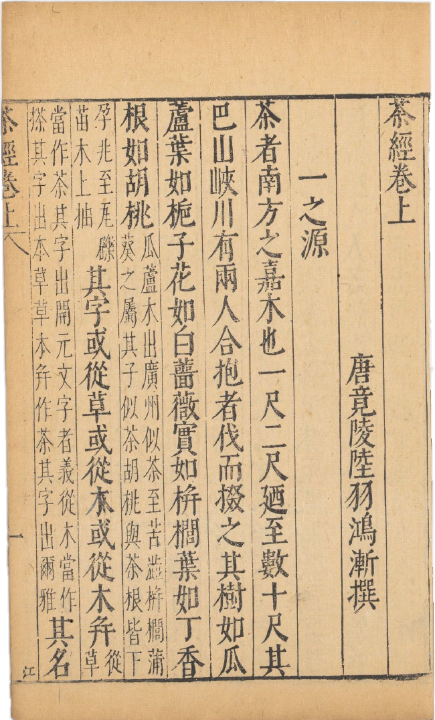 茶經卷上
唐竟陵陸羽鴻漸撰
一之源
茶者南方之嘉木也一尺二尺廼至數十尺其
巴山峽川有兩人合抱者伐而掇之其樹如瓜
蘆葉如梔子花如白薔薇實如栟櫚葉如丁香
根如胡桃瓜蘆木出廣州似茶至苦澁栟櫚蒲葵之屬其子似茶胡桃與茶根皆下
孕兆至瓦礫苗木上抽其字或從草或從木或從木并從草
當作茶其字出開元文字者義從木當作搽其字出本草草木并作茶其字出爾雅其名
茶經卷上 一 江